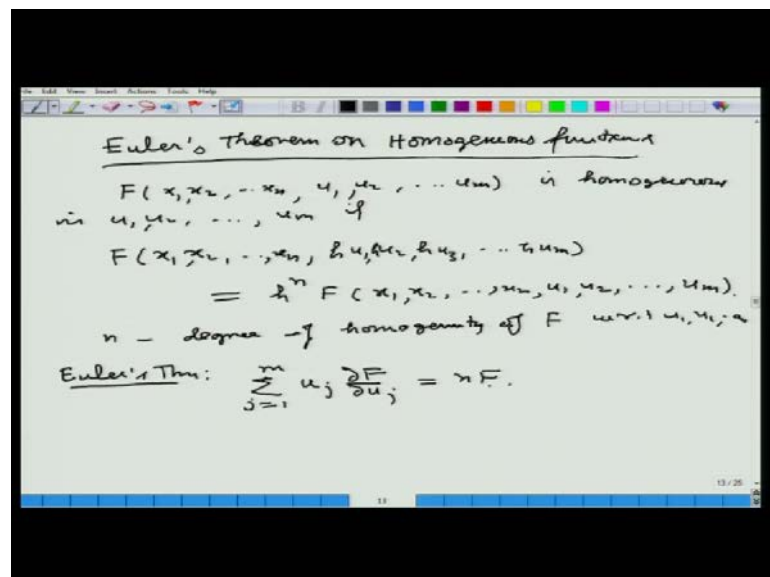 Edit View Insert Actions Tools Help
Euler's Theorem on Homogeneous functions
F(x₁, x₂, ... xₙ, u₁, u₂, ... uₘ) is homogeneous
in u₁, u₂, ..., uₘ if
F(x₁, x₂, .., xₙ, hu₁, hu₂, hu₃, ... huₘ)
= hⁿ F(x₁, x₂, .., xₙ, u₁, u₂, ..., uₘ).
n - degree of homogenity of F w.r.t u₁, u₂, ..
Euler's Thm: ∑_{j=1}^{m} u_j ∂F/∂u_j = nF.
13 / 25